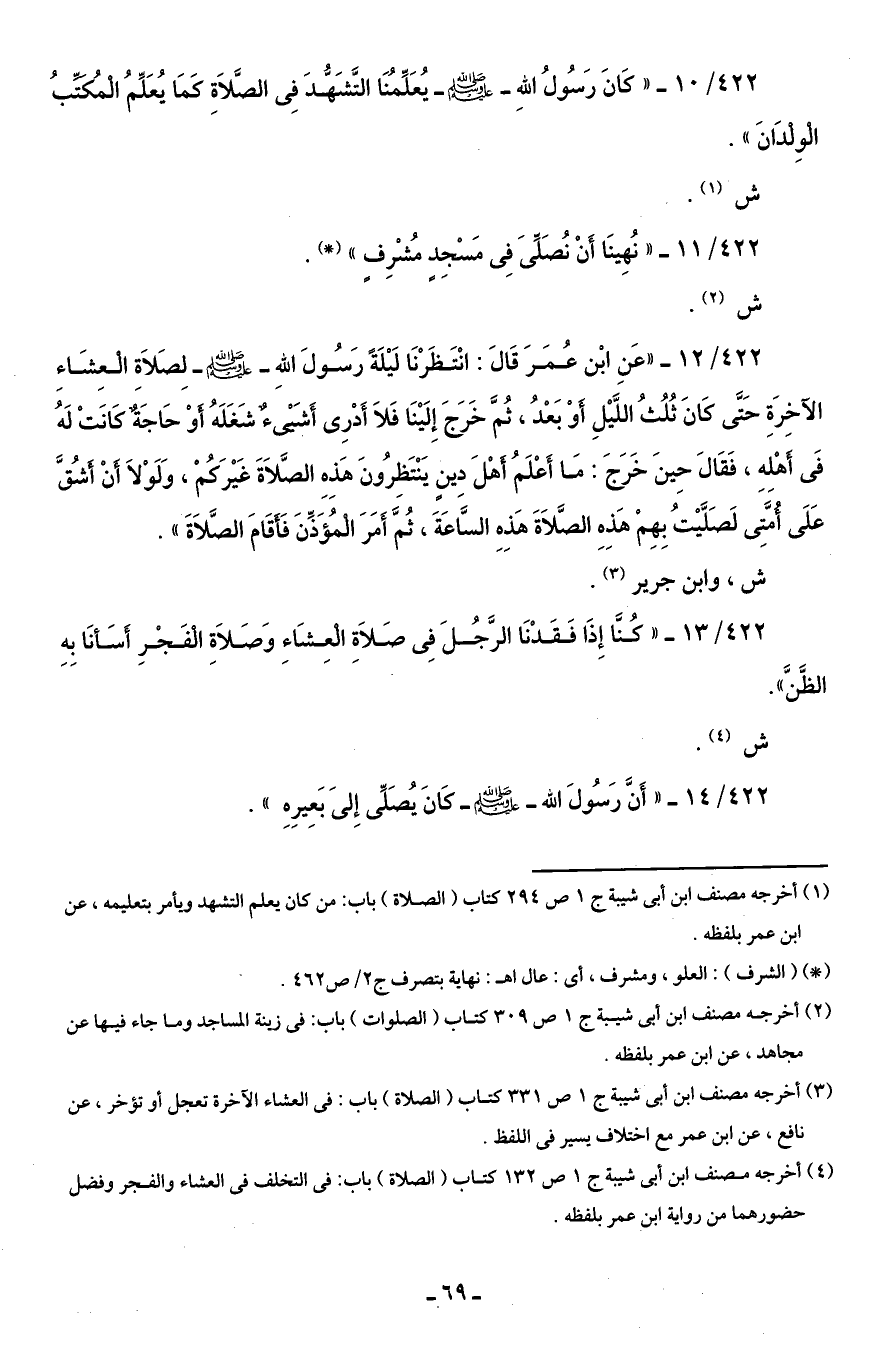 ١٠/٤٢٢ ـ « كَانَ رَسُولُ اللهِ ـ ﷺ ـ يُعَلِّمُنَا التَّشَهُّدَ فِى الصَّلَاةِ كَمَا يُعَلِّمُ الْمُكَتِّبُ
الْوِلْدَانَ » .
ش (١) .
١١/٤٢٢ ـ « نُهِينَا أَنْ نُصَلِّىَ فِى مَسْجِدٍ مُشْرِفٍ » (*) .
ش (٢) .
١٢/٤٢٢ ـ «عَنِ ابْنِ عُمَرَ قَالَ : انْتَظَرْنَا لَيْلَةً رَسُولَ اللهِ ـ ﷺ ـ لِصَلَاةِ الْعِشَاءِ
الآخِرَةِ حَتَّى كَانَ ثُلُثُ اللَّيْلِ أَوْ بَعْدُ ، ثُمَّ خَرَجَ إِلَيْنَا فَلاَ أَدْرِى أَشَيْءٌ شَغَلَهُ أَوْ حَاجَةٌ كَانَتْ لَهُ
فَى أَهْلِهِ ، فَقَالَ حِينَ خَرَجَ : مَا أَعْلَمُ أَهْلَ دِينٍ يَنْتَظِرُونَ هَذِهِ الصَّلاَةَ غَيْرَكُمْ ، وَلَوْلاَ أَنْ أَشُقَّ
عَلَى أُمَّتِى لَصَلَّيْتُ بِهِمْ هَذِهِ الصَّلاَةَ هَذِهِ السَّاعَةَ ، ثُمَّ أَمَرَ الْمُؤَذِّنَ فَأَقَامَ الصَّلاَةَ » .
ش ، وابن جرير (٣) .
١٣/٤٢٢ ـ « كُنَّا إِذَا فَقَدْنَا الرَّجُلَ فِى صَلاَةِ الْعِشَاءِ وَصَلاَةِ الْفَجْرِ أَسَأْنَا بِهِ
الظَّنَّ».
ش (٤) .
١٤/٤٢٢ ـ « أَنَّ رَسُولَ الله ـ ﷺ ـ كَانَ يُصَلِّى إِلىَ بَعِيرِهِ » .
(١) أخرجه مصنف ابن أبى شيبة ج ١ ص ٢٩٤ كتاب ( الصلاة ) باب: من كان يعلم التشهد ويأمر بتعليمه ، عن
ابن عمر بلفظه .
(*) ( الشرف ) : العلو ، ومشرف ، أى : عال اهـ : نهاية بتصرف ج٢/ ص٤٦٢ .
(٢) أخرجه مصنف ابن أبى شيبة ج ١ ص ٣٠٩ كتاب ( الصلوات ) باب: فى زينة المساجد وما جاء فيها عن
مجاهد ، عن ابن عمر بلفظه .
(٣) أخرجه مصنف ابن أبى شيبة ج ١ ص ٣٣١ كتاب ( الصلاة ) باب : فى العشاء الآخرة تعجل أو تؤخر ، عن
نافع ، عن ابن عمر مع اختلاف يسير فى اللفظ .
(٤) أخرجه مصنف ابن أبى شيبة ج ١ ص ١٣٢ كتاب ( الصلاة ) باب: فى التخلف فى العشاء والفجر وفضل
حضورهما من رواية ابن عمر بلفظه .
ـ ٦٩ ـ